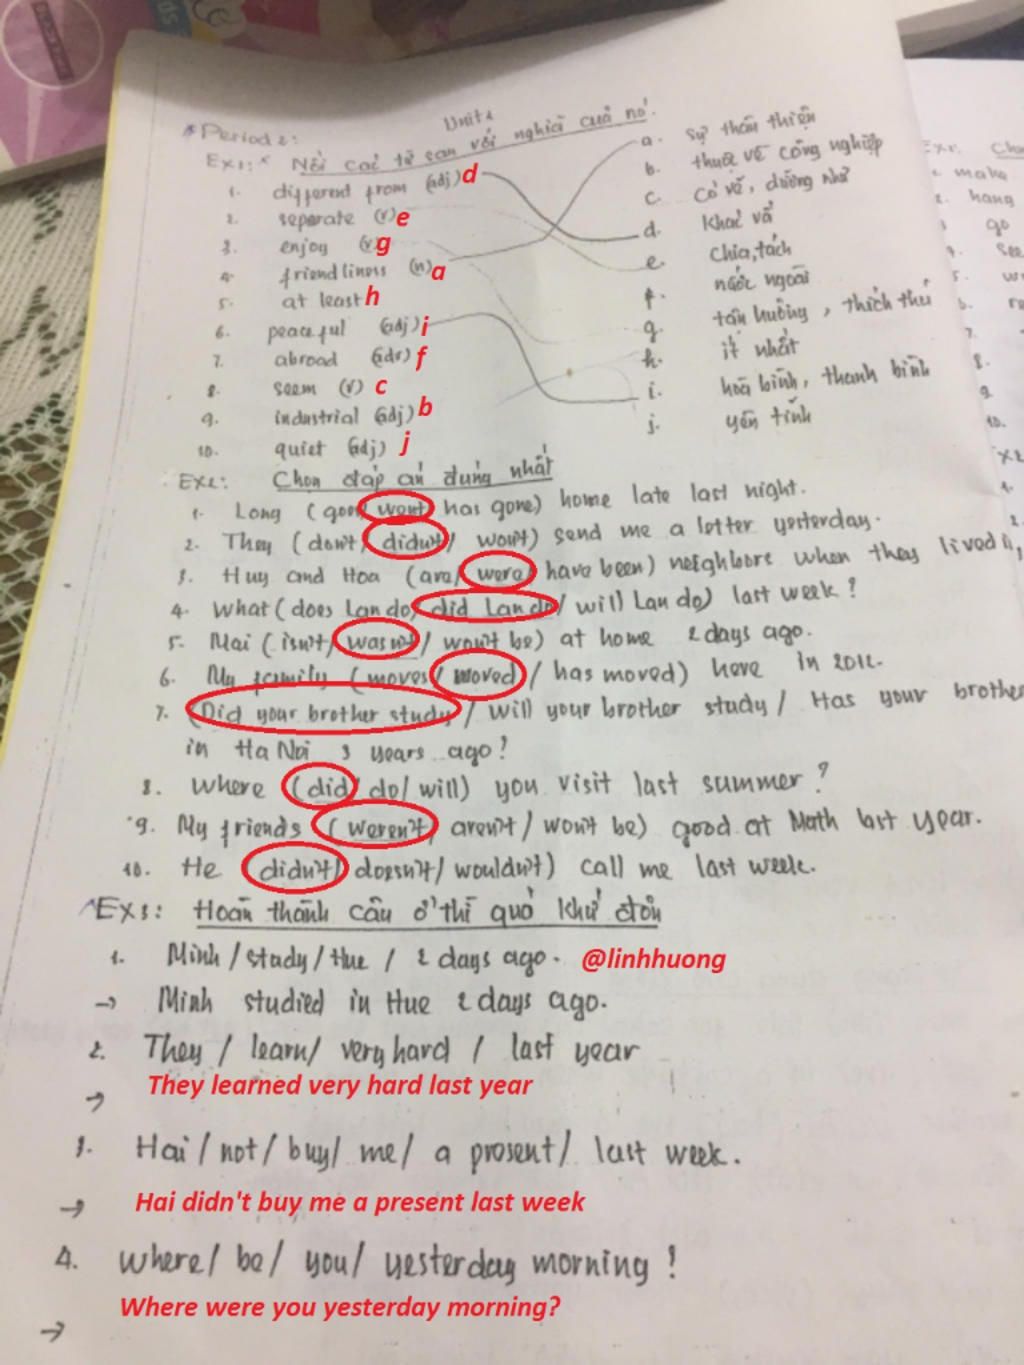 Unit 1
* Period 2:
Ex1: * Nối các từ sau với nghĩa của nó.
1. different from (adj) d
a. sự thân thiện
2. seperate (v) e
b. thuộc về công nghiệp
3. enjoy (v) g
c. có vẻ, dường như
4. friendliness (n) a
d. khác vẻ
5. at least h
e. chia, tách
6. peaceful (adj) i
f. nước ngoài
7. abroad (adv) f
g. tận hưởng, thích thú
8. seem (v) c
h. ít nhất
9. industrial (adj) b
i. hoà bình, thanh bình
10. quiet (adj) j
j. yên tĩnh
Ex2: Chọn đáp án đúng nhất
1. Long (goes/ went/ has gone) home late last night.
2. They (don't/ didn't/ won't) send me a letter yesterday.
3. Huy and Hoa (are/ were/ have been) neighbors when they lived in,
4. What (does Lan do/ did Lan do/ will Lan do) last week?
5. Mai (isn't/ wasn't/ won't be) at home 2 days ago.
6. My family (moves/ moved / has moved) here in 2012.
7. (Did your brother study/ will your brother study/ Has your brother
in Ha Noi 3 years ago?
8. Where (did/ do/ will) you visit last summer?
9. My friends (weren't/ aren't/ won't be) good at Math last year.
10. He (didn't/ doesn't/ wouldn't) call me last week.
Ex3: Hoàn thành câu ở thì quá khứ đơn
1. Minh / study / Hue / 2 days ago. @linhhuong
→ Minh studied in Hue 2 days ago.
2. They / learn / very hard / last year
→ They learned very hard last year
3. Hai / not / buy / me / a present / last week.
→ Hai didn't buy me a present last week
4. Where / be / you / yesterday morning?
→ Where were you yesterday morning?
Ex1. Cho
1. make
2. hang
go
4. see
5.
6.
7.
8.
9
10.